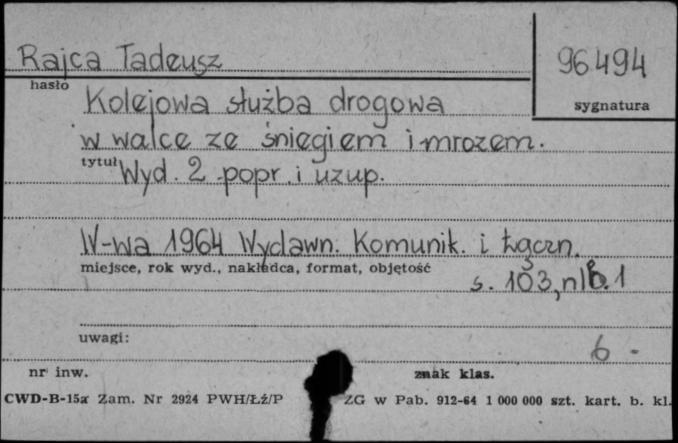 Rajca Tadeusz
96494
hasło
sygnatura
Kolejowa służba drogowa
w walce ze śniegiem i mrozem.
tytuł
Wyd. 2 popr. i uzup.
W-wa 1964 Wydawn. Komunik. i Łączn.
miejsce, rok wyd., nakładca, format, objętość
s. 103, nlb. 1
uwagi:
6 -
nr inw.
znak klas.
CWD-B-15a Zam. Nr 2924 PWH/Łź/P
ZG w Pab. 912-64 1 000 000 szt. kart. b. kl.